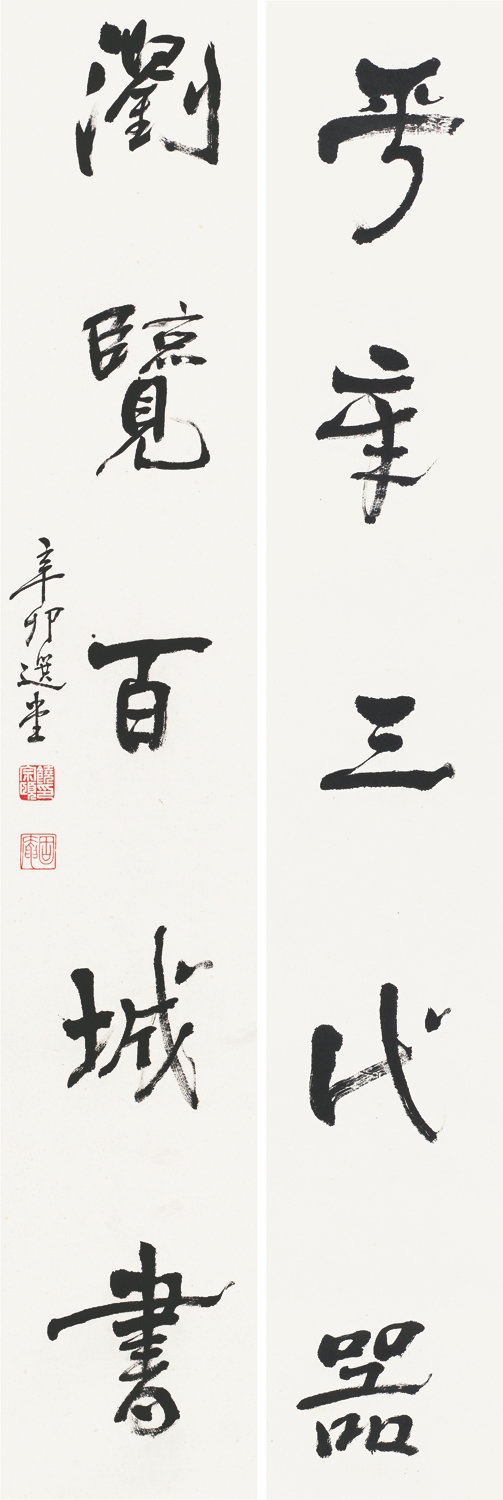 平章三代器
瀏覽百城書
辛卯選堂